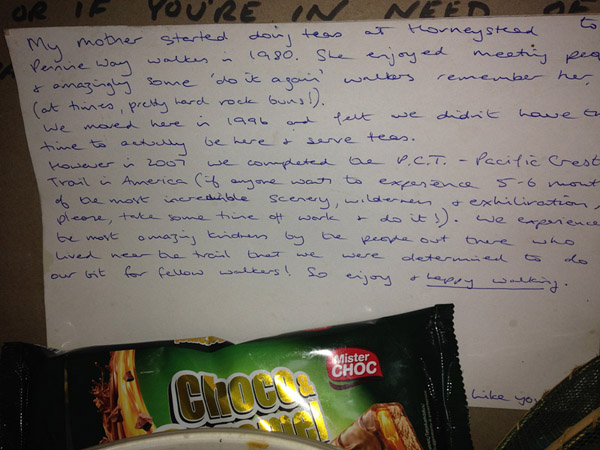 OR IF YOU'RE IN NEED OF
My mother started doing teas at Horneystead to
Pennine Way walkers in 1980. She enjoyed meeting peop
& amazingly some 'do it again' walkers remember her,
(at times, pretty hard rock buns!).
We moved here in 1996 and felt we didn't have th
time to actually be here & serve teas.
However in 2007 we completed the P.C.T. - Pacific Crest
Trail in America (if anyone wants to experience 5-6 mont
of the most incredible scenery, wilderness & exhiliration,
please, take some time off work & do it!). We experience
the most amazing kindness by the people out there who
lived near the trail that we were determined to do
our bit for fellow walkers! So enjoy & happy walking.
Mister
CHOC
CHOCO &
Like you